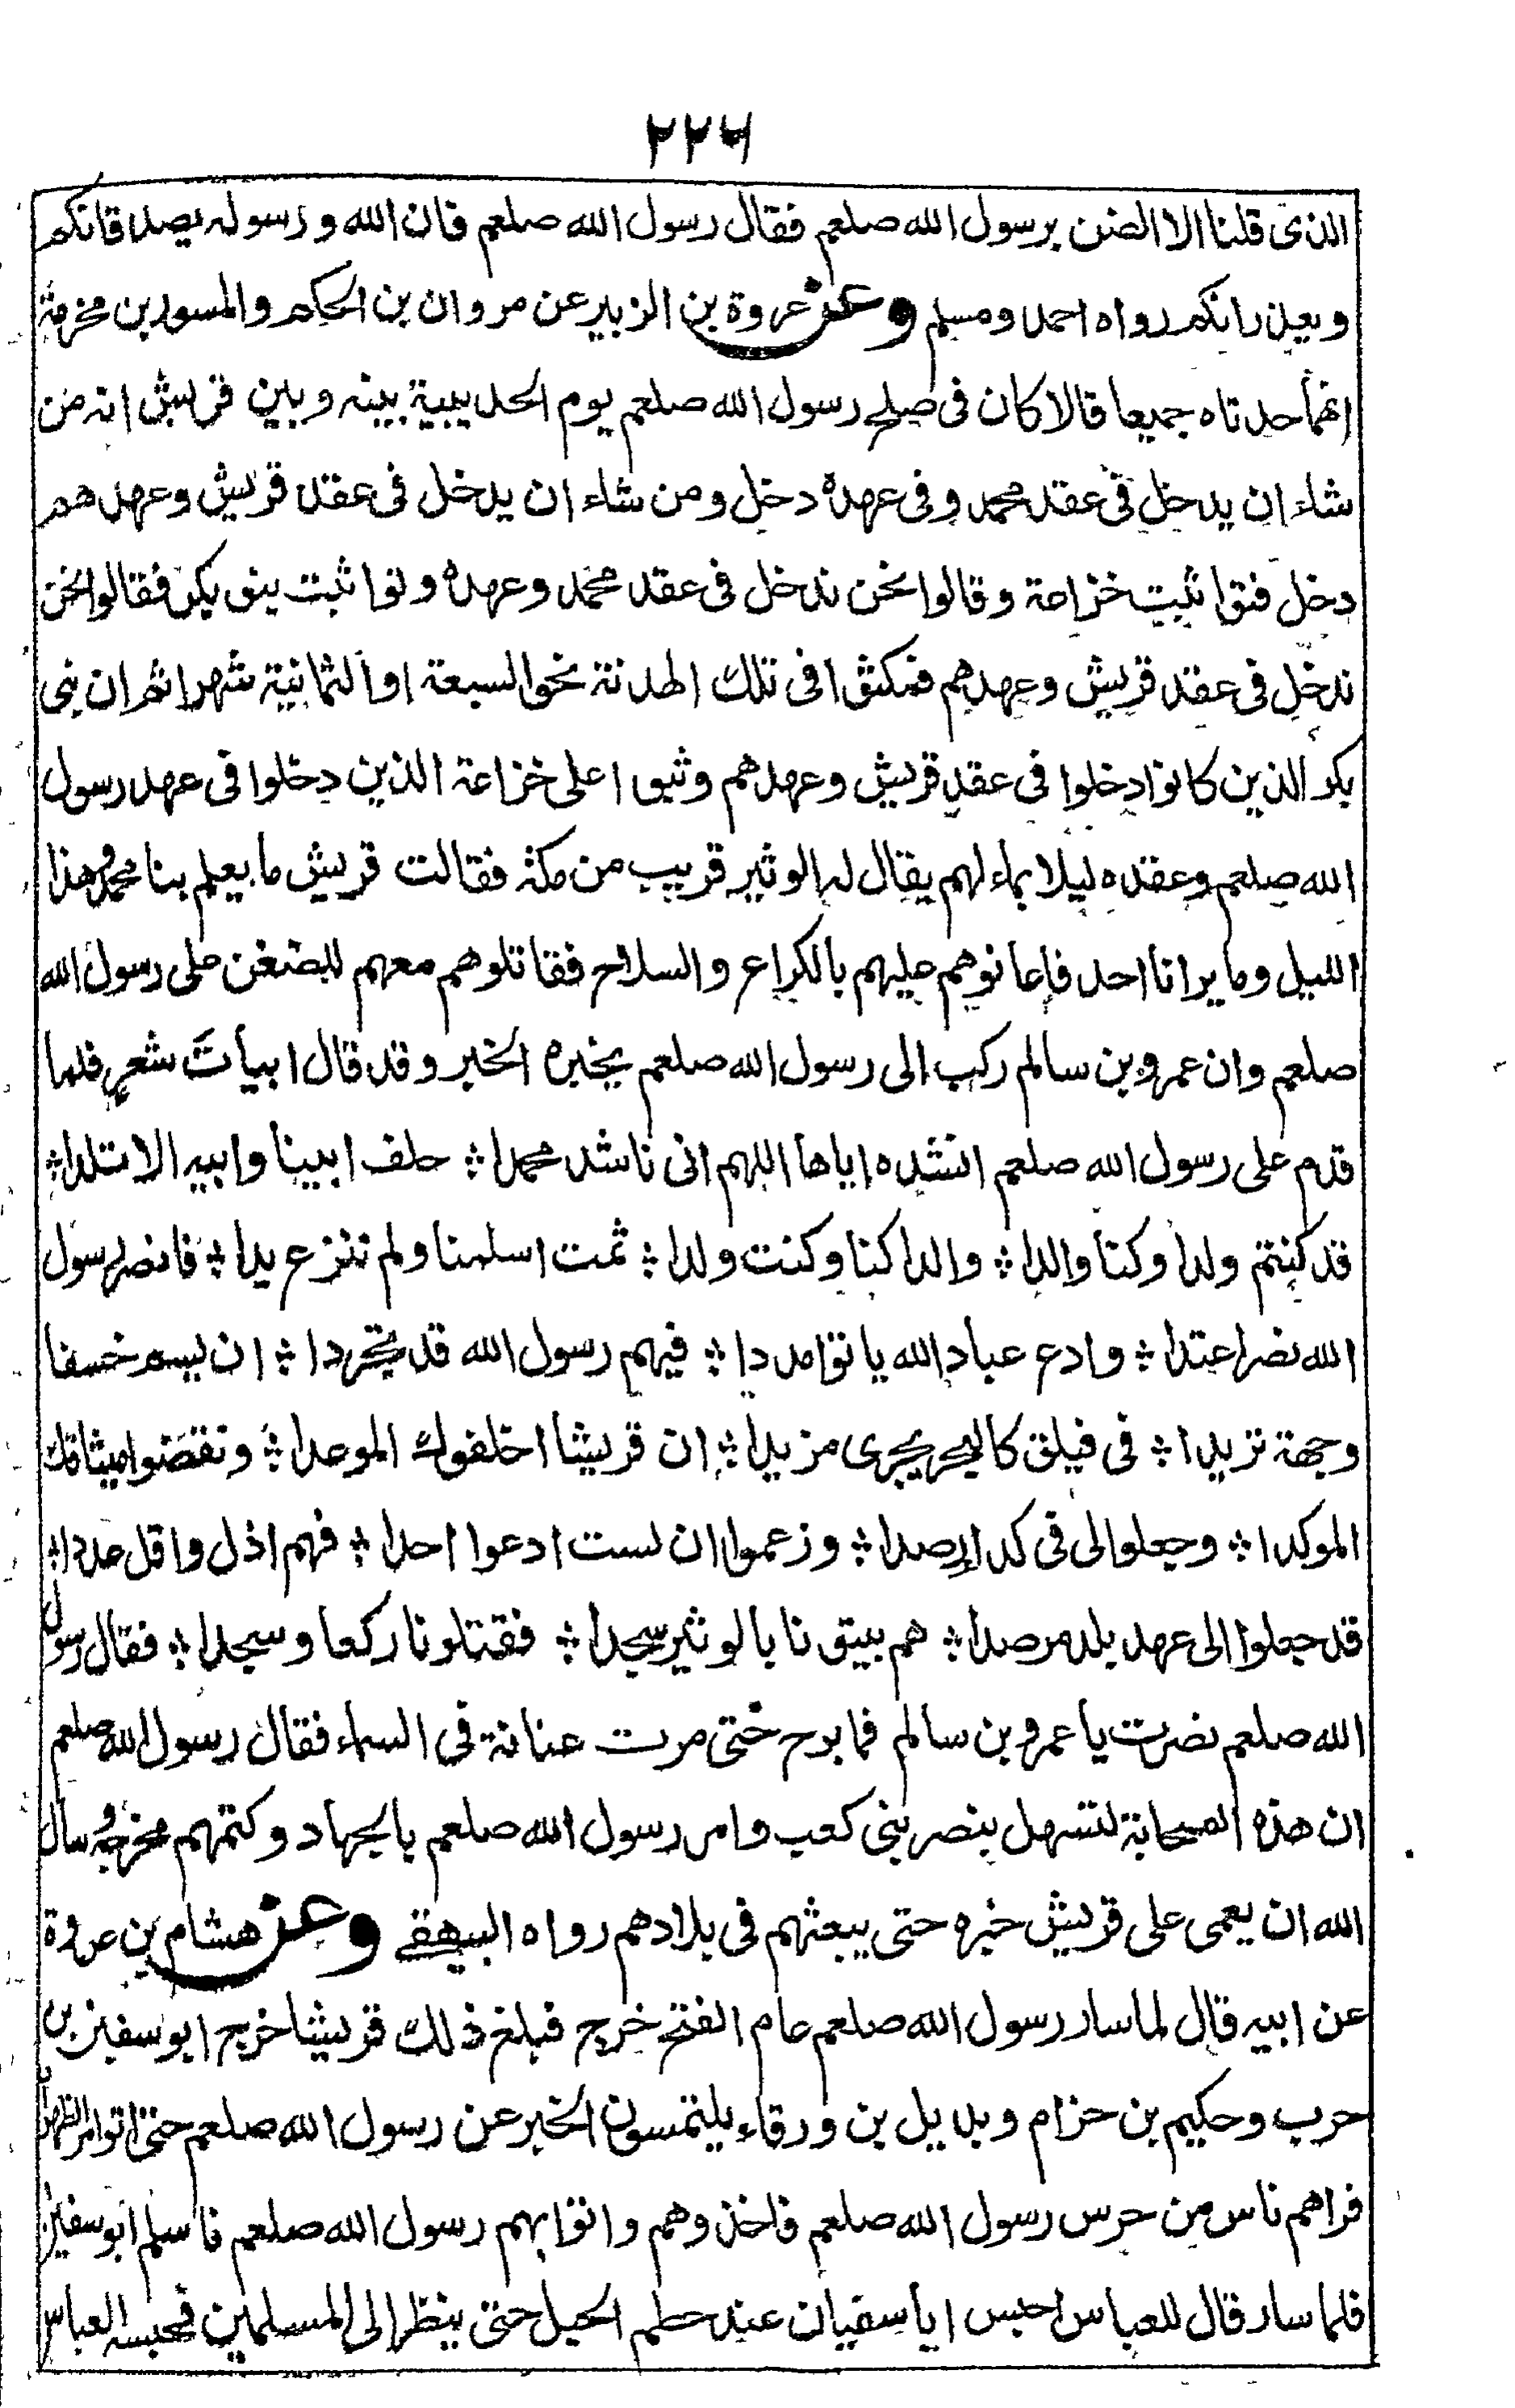 ٢٢٦
الذى قلنا الا الضن برسول الله صلعم فقال رسول الله صلعم فان الله ورسوله يصدقانكم
ويعذرانكم رواه احمد ومسلم وعن عروة بن الزبير عن مروان بن الحكم والمسور بن مخرمة
انهما حدثاه جميعا قالا كان فى صلح رسول الله صلعم يوم الحديبية بينه وبين قريش انه من
شاء ان يدخل فى عقد محمد وفى عهده دخل ومن شاء ان يدخل فى عقد قريش وعهدهم
دخل فتواثبت خزاعة وقالوا نحن ندخل فى عقد محمد وعهده وتواثبت بنو بكر فقالوا نحن
ندخل فى عقد قريش وعهدهم فمكثوا فى تلك الهدنة نحو السبعة او الثمانية شهرا ثم ان بنى
بكر الذين كانوا دخلوا فى عقد قريش وعهدهم وثبوا على خزاعة الذين دخلوا فى عهد رسول
الله صلعم وعقده ليلا بماء لهم يقال له الوثير قريب من مكة فقالت قريش ما يعلم بنا محمد وهذا
الليل وما يرانا احد فاعانوهم عليهم بالكراع والسلاح فقاتلوهم معهم للضغن على رسول الله
صلعم وان عمرو بن سالم ركب الى رسول الله صلعم يخبره الخبر وقد قال ابيات شعر فلما
قدم على رسول الله صلعم انشده اياها اللهم انى ناشد محمدا ؞ حلف ابينا وابيه الاتلدا ؞
قد كنتم ولدا وكنا والدا ؞ والدا كنا وكنت ولدا ؞ ثمت اسلمنا ولم ننزع يدا ؞ فانصر رسول
الله نصرا عتدا ؞ وادع عباد الله ياتوا مددا ؞ فيهم رسول الله قد تجردا ؞ ان يسم خسفا
وجهة تربدا ؞ فى فيلق كالبحر يجرى مزبدا ؞ ان قريشا اخلفوك الموعدا ؞ ونقضوا ميثاقك
الموكدا ؞ وجعلوا لى فى كداء رصدا ؞ وزعموا ان لست ادعوا احدا ؞ فهم اذل واقل عددا ؞
قد جعلوا الى عهد بلد مرصدا ؞ هم بيتونا بالوثير سجدا ؞ فقتلونا ركعا وسجدا ؞ فقال رسول
الله صلعم نصرت يا عمرو بن سالم فما برح حتى مرت عنانة فى السماء فقال رسول الله صلعم
ان هذه السحابة لتستهل بنصر بنى كعب وامر رسول الله صلعم بالجهاد وكتمهم مخرجه وسال
الله ان يعمى على قريش خبره حتى يبعثهم فى بلادهم رواه البيهقى وعن هشام بن عروة
عن ابيه قال لما سار رسول الله صلعم عام الفتح خرج فبلغ ذلك قريشا خرج ابو سفين بن
حرب وحكيم بن حزام وبديل بن ورقاء يلتمسون الخبر عن رسول الله صلعم حتى اتوا مر الظهران
فراهم ناس من حرس رسول الله صلعم فاخذوهم واتوا بهم رسول الله صلعم فاسلم ابو سفين
فلما سار قال للعباس احبس ابا سفيان عند حطم الخيل حتى ينظر الى المسلمين فحبسه العباس